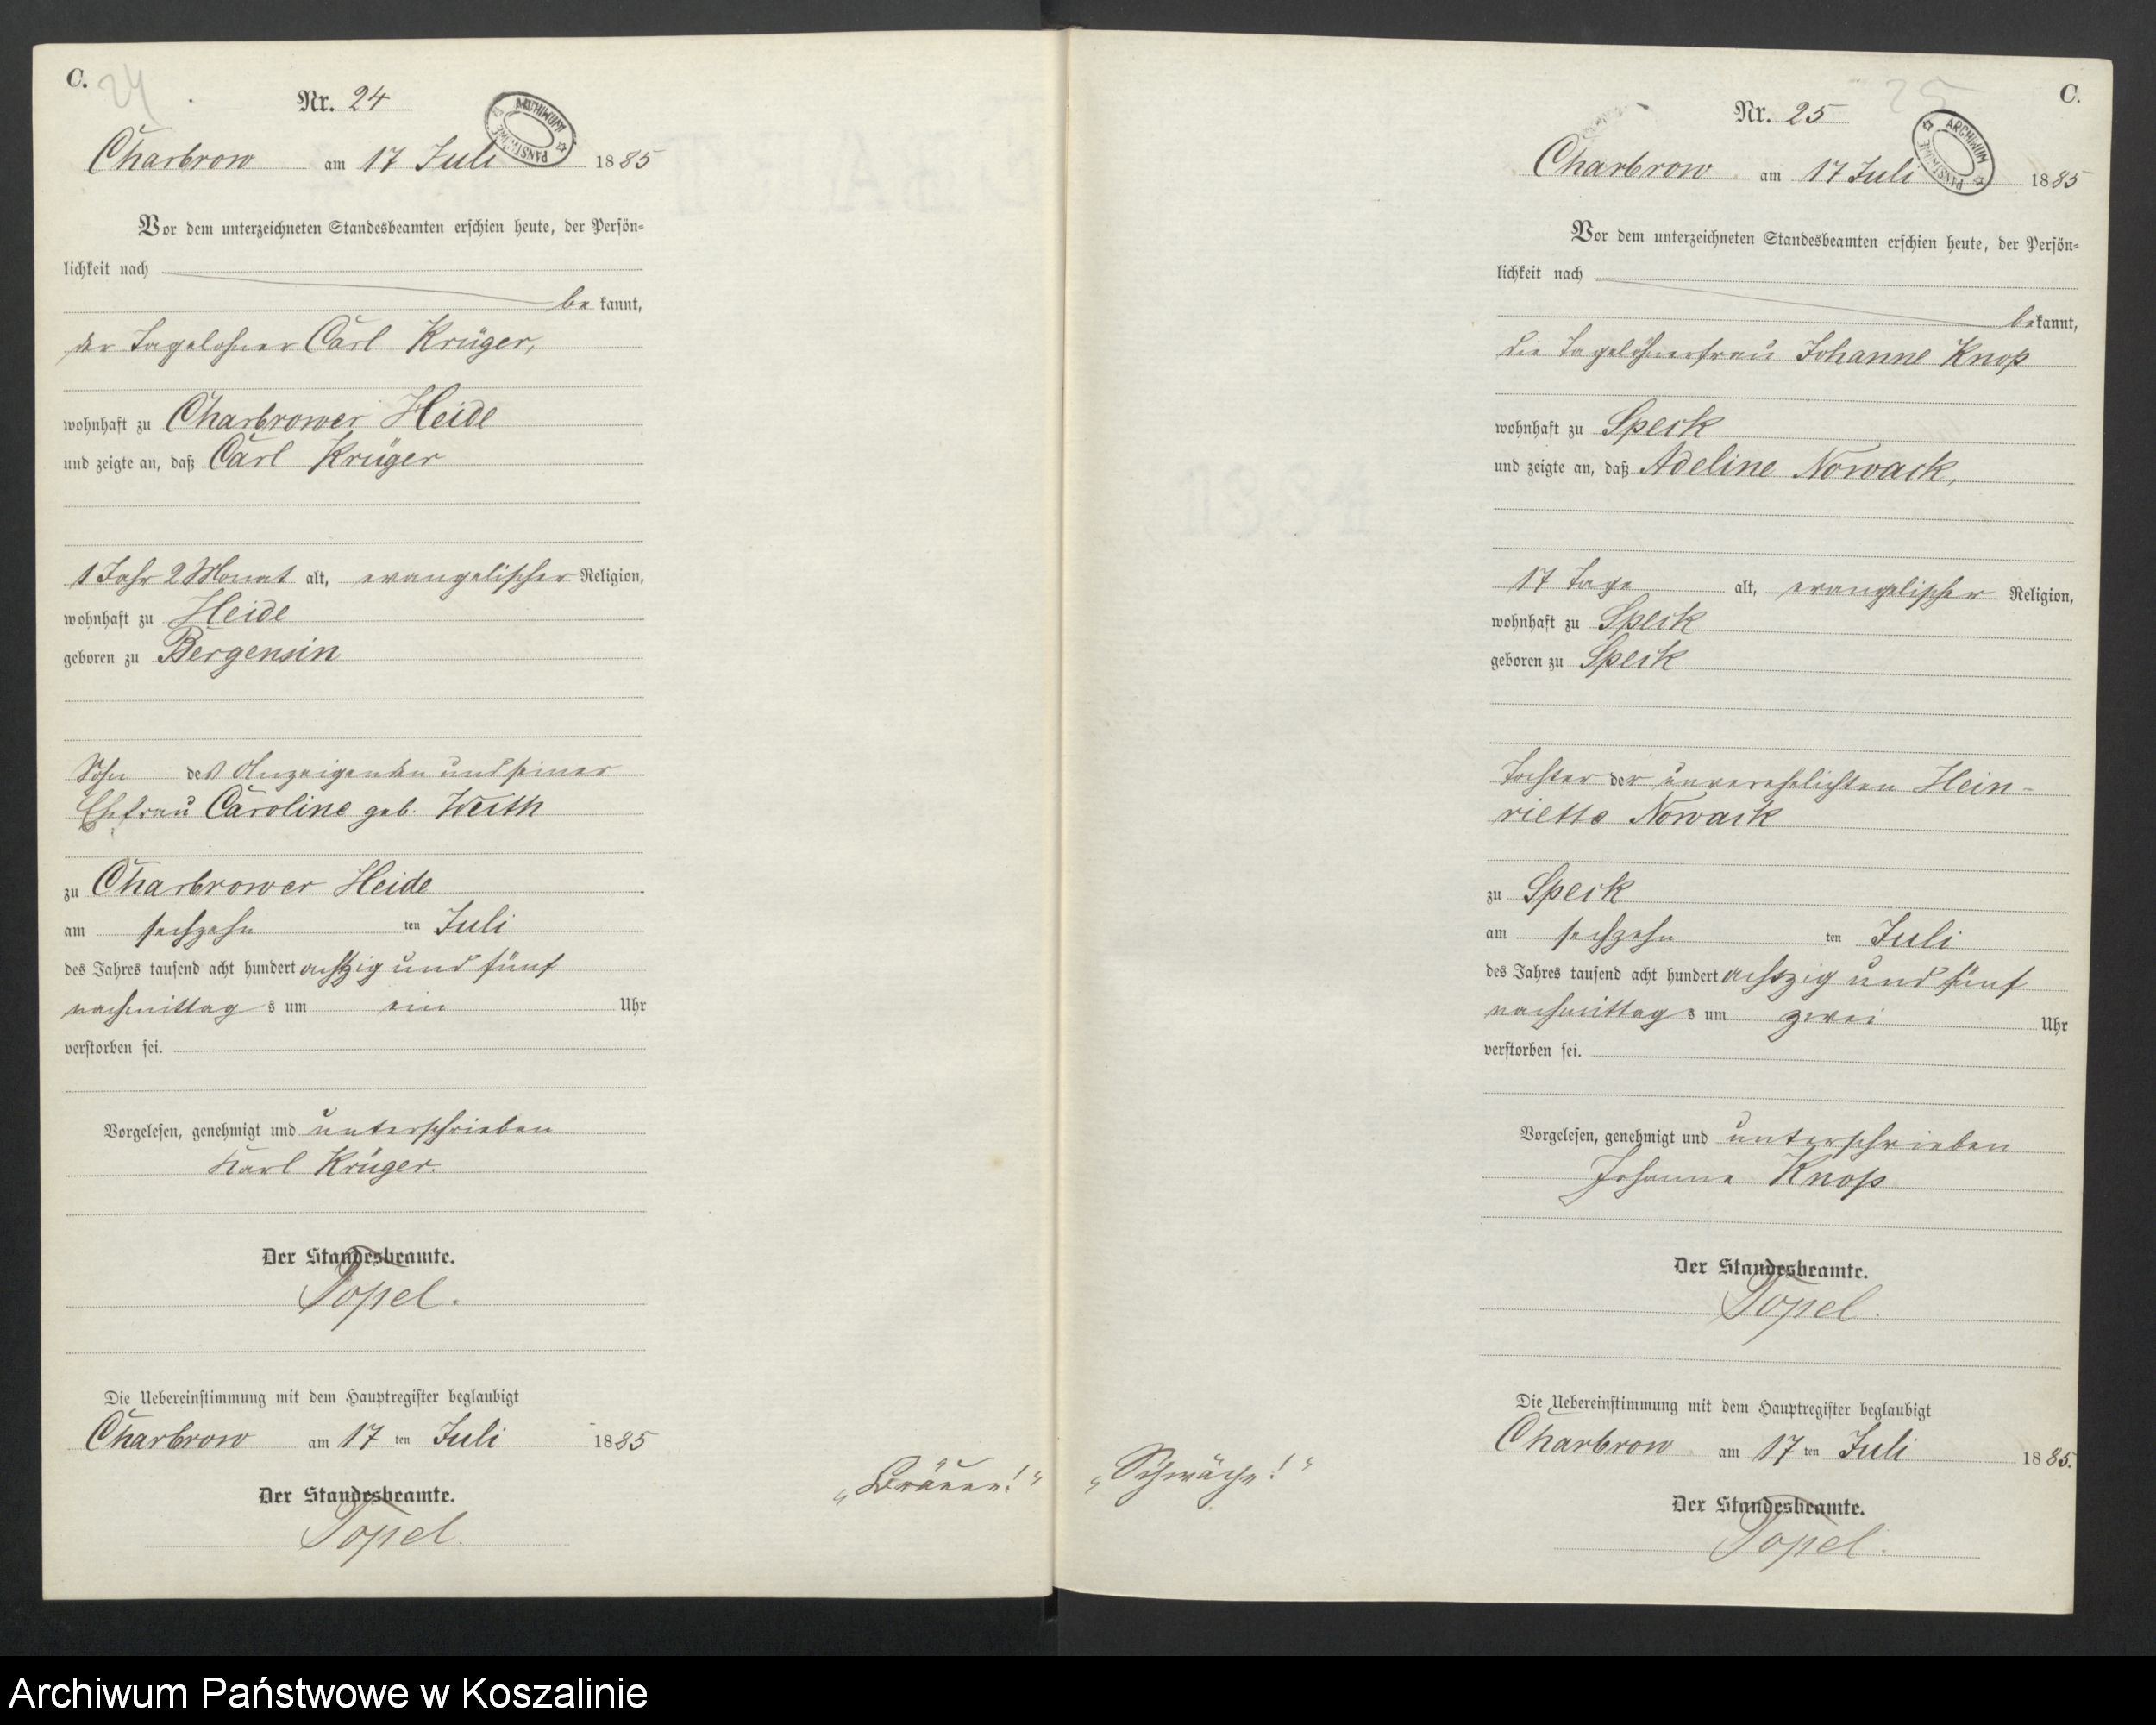 C. 24
Nr. 24
ARCHIWUM PAŃSTWOWE
Charbrow am 17 Juli 1885
Vor dem unterzeichneten Standesbeamten erschien heute, der Persön-
lichkeit nach
be kannt,
der Tagelohner Carl Krüger,
wohnhaft zu Charbrower Heide
und zeigte an, daß Carl Krüger
1 Jahr 2 Monat alt, evangelischer Religion,
wohnhaft zu Heide
geboren zu Bergensin
Sohn des Anzeigenden und seiner
Ehefrau Caroline geb. Weith
zu Charbrower Heide
am sechzehn ten Juli
des Jahres tausend acht hundert achtzig und fünf
nachmittag s um ein Uhr
verstorben sei.
Vorgelesen, genehmigt und unterschrieben
Karl Krüger.
Der Standesbeamte.
Topel.
Die Uebereinstimmung mit dem Hauptregister beglaubigt
Charbrow am 17 ten Juli 1885
Der Standesbeamte.
Topel.
„Bräune!“
25 C.
Nr. 25
ARCHIWUM PAŃSTWOWE
Charbrow am 17 Juli 1885
Vor dem unterzeichneten Standesbeamten erschien heute, der Persön-
lichkeit nach
bekannt,
die Tagelöhnerfrau Johanne Knop
wohnhaft zu Speck
und zeigte an, daß Adeline Nowack,
17 Tage alt, evangelischer Religion,
wohnhaft zu Speck
geboren zu Speck
Tochter der unverehelichten Hein-
riette Nowack
zu Speck
am sechzehn ten Juli
des Jahres tausend acht hundert achtzig und fünf
nachmittag s um zwei Uhr
verstorben sei.
Vorgelesen, genehmigt und unterschrieben
Johanne Knop
Der Standesbeamte.
Topel.
Die Uebereinstimmung mit dem Hauptregister beglaubigt
Charbrow am 17 ten Juli 1885.
Der Standesbeamte.
Topel.
„Schwäche!“
Archiwum Państwowe w Koszalinie